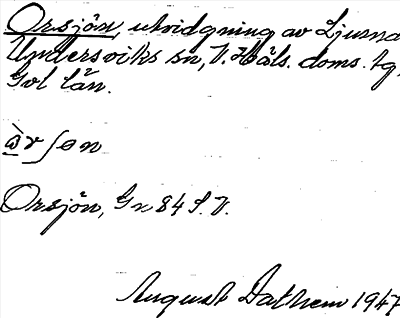 Orsjön, utvidgning av Ljusna
Undersviks sn, V. Häls. doms. tg,
Gvl län.
ὼr ʃɵn
Orsjön, Gn 84 S.V.
August Dathem 1947